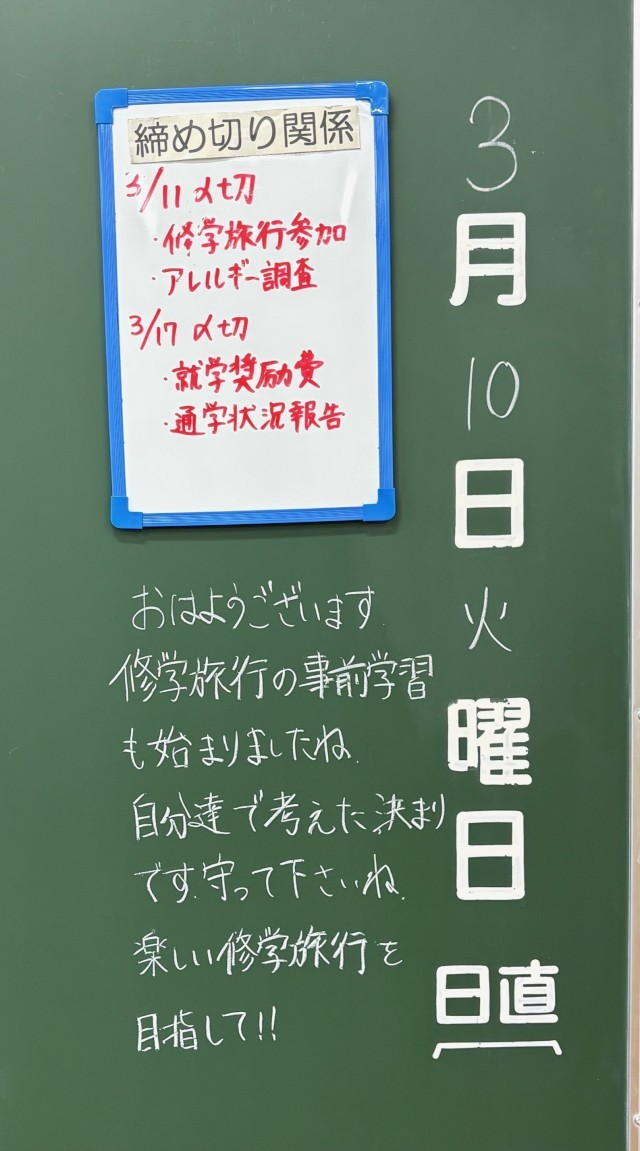 締め切り関係
3/11 〆切
・修学旅行参加
・アレルギー調査
3/17 〆切
・就学奨励費
・通学状況報告
3月10日火曜日
日直
おはようございます.
修学旅行の事前学習
も始まりましたね.
自分達で考えた決まり
です.守って下さいね.
楽しい修学旅行を
目指して!!